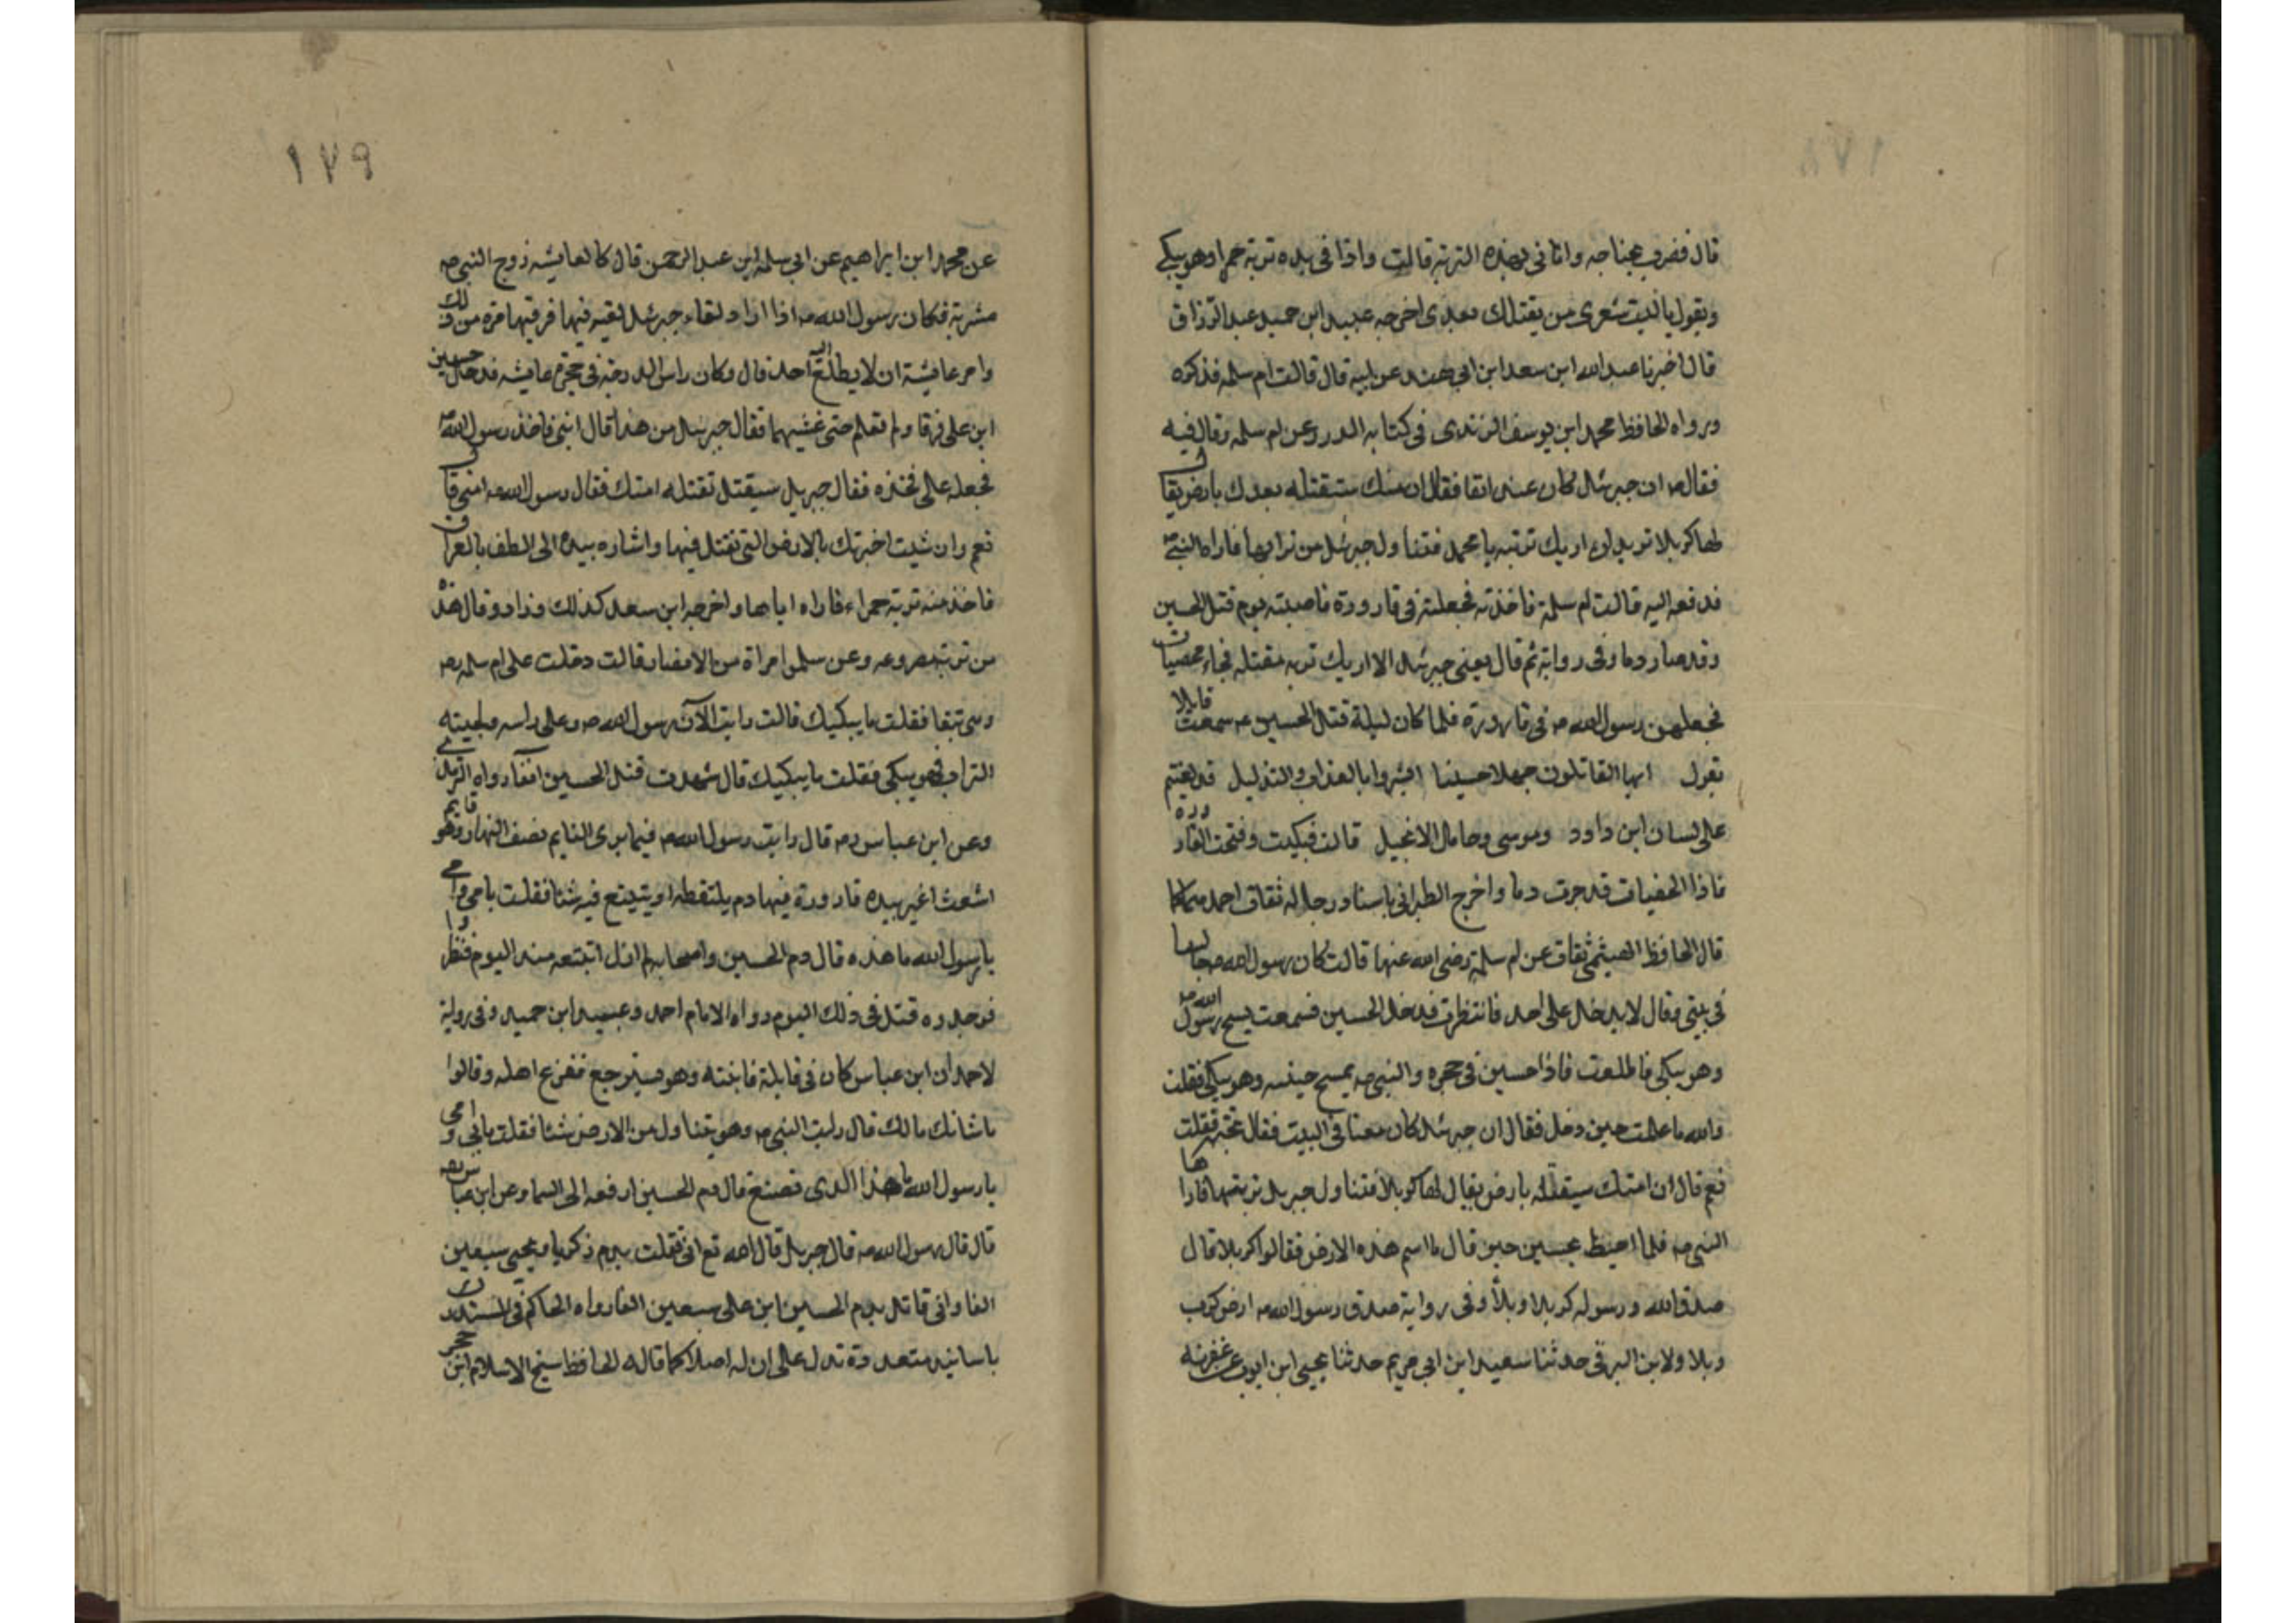 ١٧٨
قال فضرب بجناحه واتانى بهذه التربة قالت واذا فى يده تربة حمراء وهو يبكى
ويقول يا ليت شعرى من يقتلك بعدى اخرجه عبيد ابن حميد عبد الرزاق
قال اخبرنا عبد الله ابن سعد ابن ابى هند عن ابيه قال قالت ام سلمه فذكره
ورواه الحافظ محمد ابن يوسف الزرندى فى كتابه الدرر وعن ام سلمه وقال فيه
فقال ص ان جبرئل كان عندى انفا فقال ان امتك ستقتله بعدك بارض يقال
لها كربلا تريد ان اريك تربته يا محمد فتناول جبرئل من ترابها فاراه النبى ص
فدفعه اليه قالت ام سلمة فاخذته فجعلته فى قارورة فاصبته يوم قتل الحسين
وقد صار دما وفى رواية ثم قال يعنى جبرئل الا اريك تربة مقتله فجاء بحصيات
فجعلهن رسول الله ص فى قارورة فلما كان ليلة قتل الحسين ع سمعت قايلا
يقول ايها القاتلون جهلا حسينا ابشروا بالعذاب والتذليل قد لعنتم
على لسان ابن داود وموسى وحامل الانجيل قالت فبكيت وفتحت القارورة
فاذا الحصيات قد جرت دما واخرج الطبرانى باسناد رجاله ثقات احمد
قال الحافظ الهيثمى ثقات عن ام سلمة رضى الله عنها قالت كان رسول الله ص جالسا
فى بيتى فقال لا يدخل على احد فانتظرت فدخل الحسين فسمعت رسول الله ص
وهو يبكى فاطلعت فاذا حسين فى حجره والنبى ص يمسح جبينه وهو يبكى فقلت
والله ما علمت حين دخل فقال ان جبرئل كان معنا فى البيت فقال تحبه فقلت
نعم قال ان امتك سيقتله بارض يقال لها كربلا فتناول جبريل تربتها فاراها
النبى ص فلما احيط بحسين حين قال ما اسم هذه الارض فقالوا كربلا قال
صدق الله ورسوله كربلا وبلأ وفى رواية صدق رسول الله ص ارض كرب
وبلا ولابن البرقى حدثنا سعيد ابن ابى مريم حدثنا يحيى ابن ايوب
١٧٩
عن محمد ابن ابراهيم عن ابى سلمه ابن عبد الرحمن قال كا لعايشه زوج النبى ص
مشربة فكان رسول الله ص اذا اراد لقاء جبرئل لقيه فيها فرقيها مرة من ذلك
وامر عائشة ان لا يطلع اليه احد قال وكان راس الدرجة فى حجرة عايشه فدخل حسين
ابن على فرقا ولم تعلم حتى غشيهما فقال جبرئل من هذا قال ابنى فاخذ رسول الله ص
فجعله على فخذه فقال جبريل سيقتل تقتله امتك فقال رسول الله ص امتى قال
نعم وان شيت اخبرتك بالارض التى تقتل فيها واشاره بيده الى الطف بالعراق
فاخذ منه تربة حمراء فاراه اياها واخرجه ابن سعد كذلك وزاد وقال هذه
من تربة مصرعه وعن سلمى امراة من الانصار قالت دخلت على ام سلمه رض
وهى تبكى فقلت ما يبكيك قالت رايت الآن رسول الله ص وعلى راسه ولحيته
التراب وهو يبكى فقلت ما يبكيك قال شهدت قتل الحسين آنفآ رواه الترمذى
وعن ابن عباس رض قال رايت رسول الله ص فيما يرى النايم نصف النهار وهو قايم
اشعث اغبر بيده قارورة فيها دم يلتقطه او يتتبع فيه شئا فقلت بابى وامى
يا رسول الله ما هذه قال دم الحسين واصحابه لم ازل اتبعه منذ اليوم فنظروا
فوجدوه قتل فى ذلك اليوم رواه الامام احمد وعبيد ابن حميد وفى رواية
لاحمد ان ابن عباس كان فى قايلة فانبته وهو يسترجع ففزع اهله وقالوا
ما شانك مالك قال رايت النبى ص وهو يتناول من الارض شئا فقلت بابى وامى
يا رسول الله ما هذا الذى تصنع قال دم الحسين ارفعه الى السماء وعن ابن عباس رض
قال قال رسول الله ص قال جبريل قال الله تع انى قتلت بدم زكريا ويحيى سبعين
الفا وانى قاتل بدم الحسين ابن على سبعين الفا رواه الحاكم فى المستدرك
باسانيد متعددة تدل على ان له اصلا كما قاله الحافظ شيخ الاسلام ابن حجر